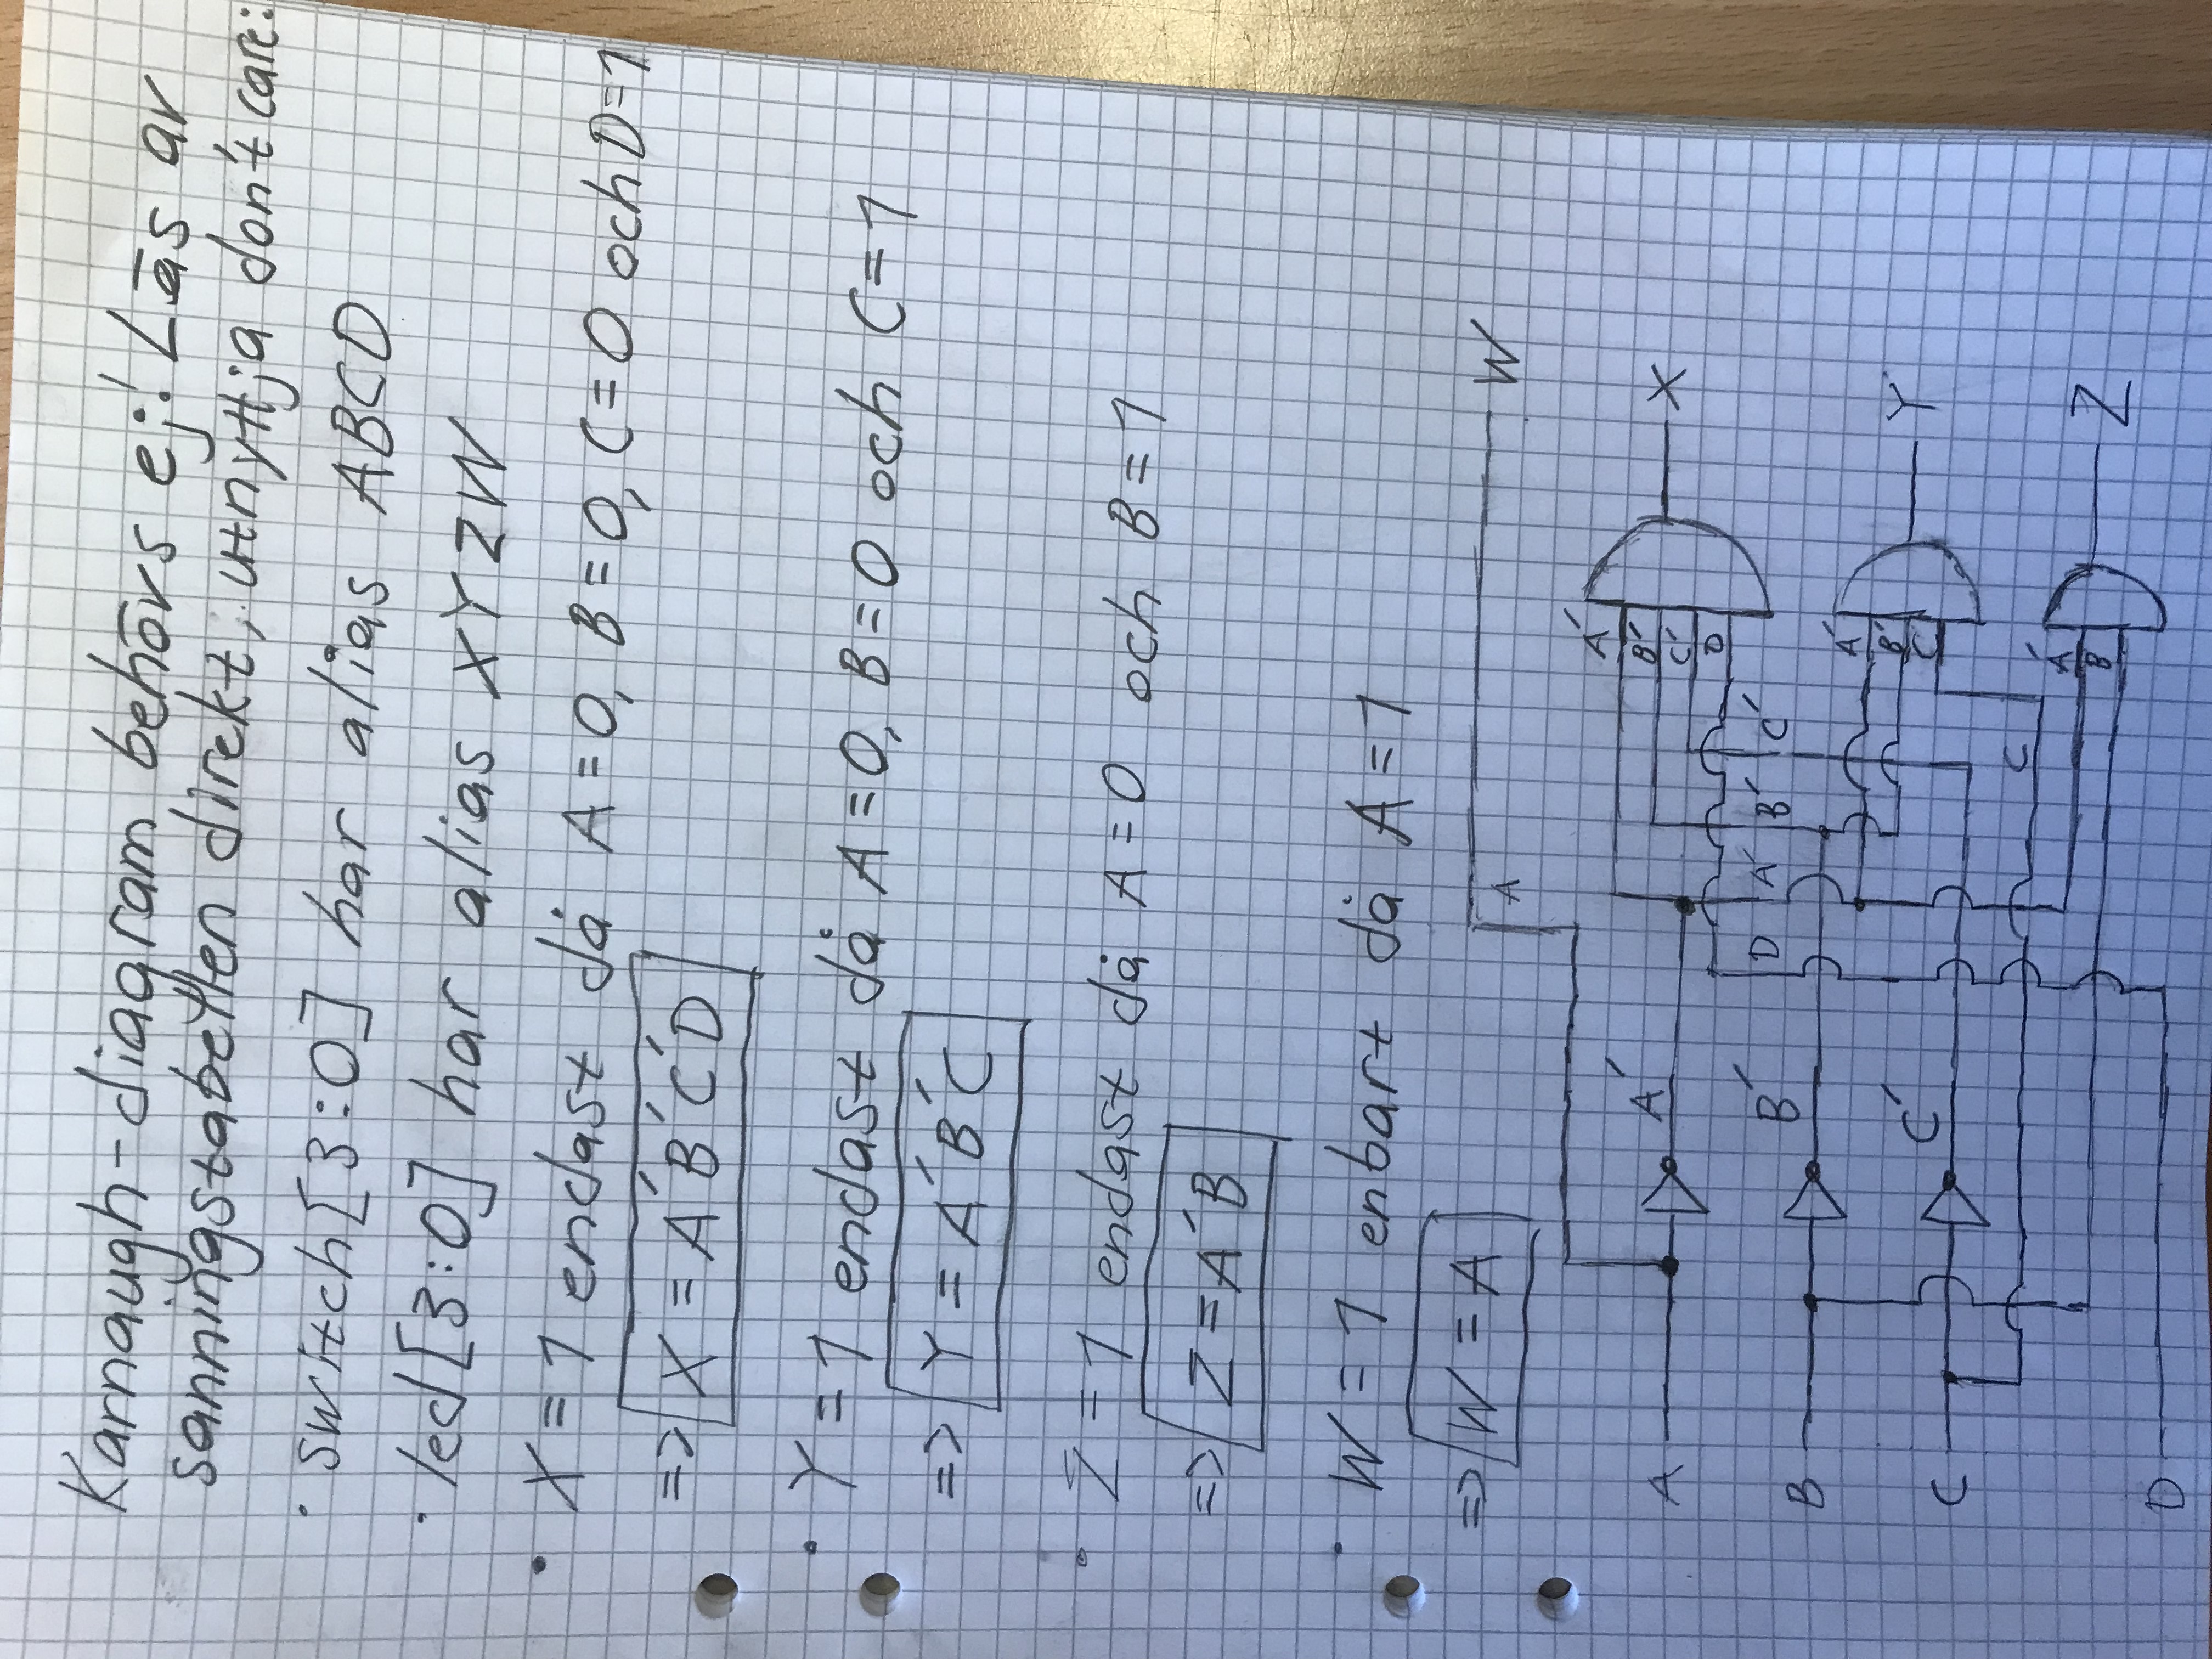 Karnaugh-diagram behövs ej! Läs av
sanningstabellen direkt, utnyttja don't care:
· switch[3:0] har alias ABCD
· led[3:0] har alias XYZW
· X = 1 endast då A = 0, B = 0, C = 0 och D = 1
=> X = A'B'C'D
· Y = 1 endast då A = 0, B = 0 och C = 1
=> Y = A'B'C
· Z = 1 endast då A = 0 och B = 1
=> Z = A'B
· W = 1 enbart då A = 1
=> W = A
A W
A A' A' B' C' D X
D A' B' C'
B B'
A' B' C Y
C C'
C
A' B Z
D